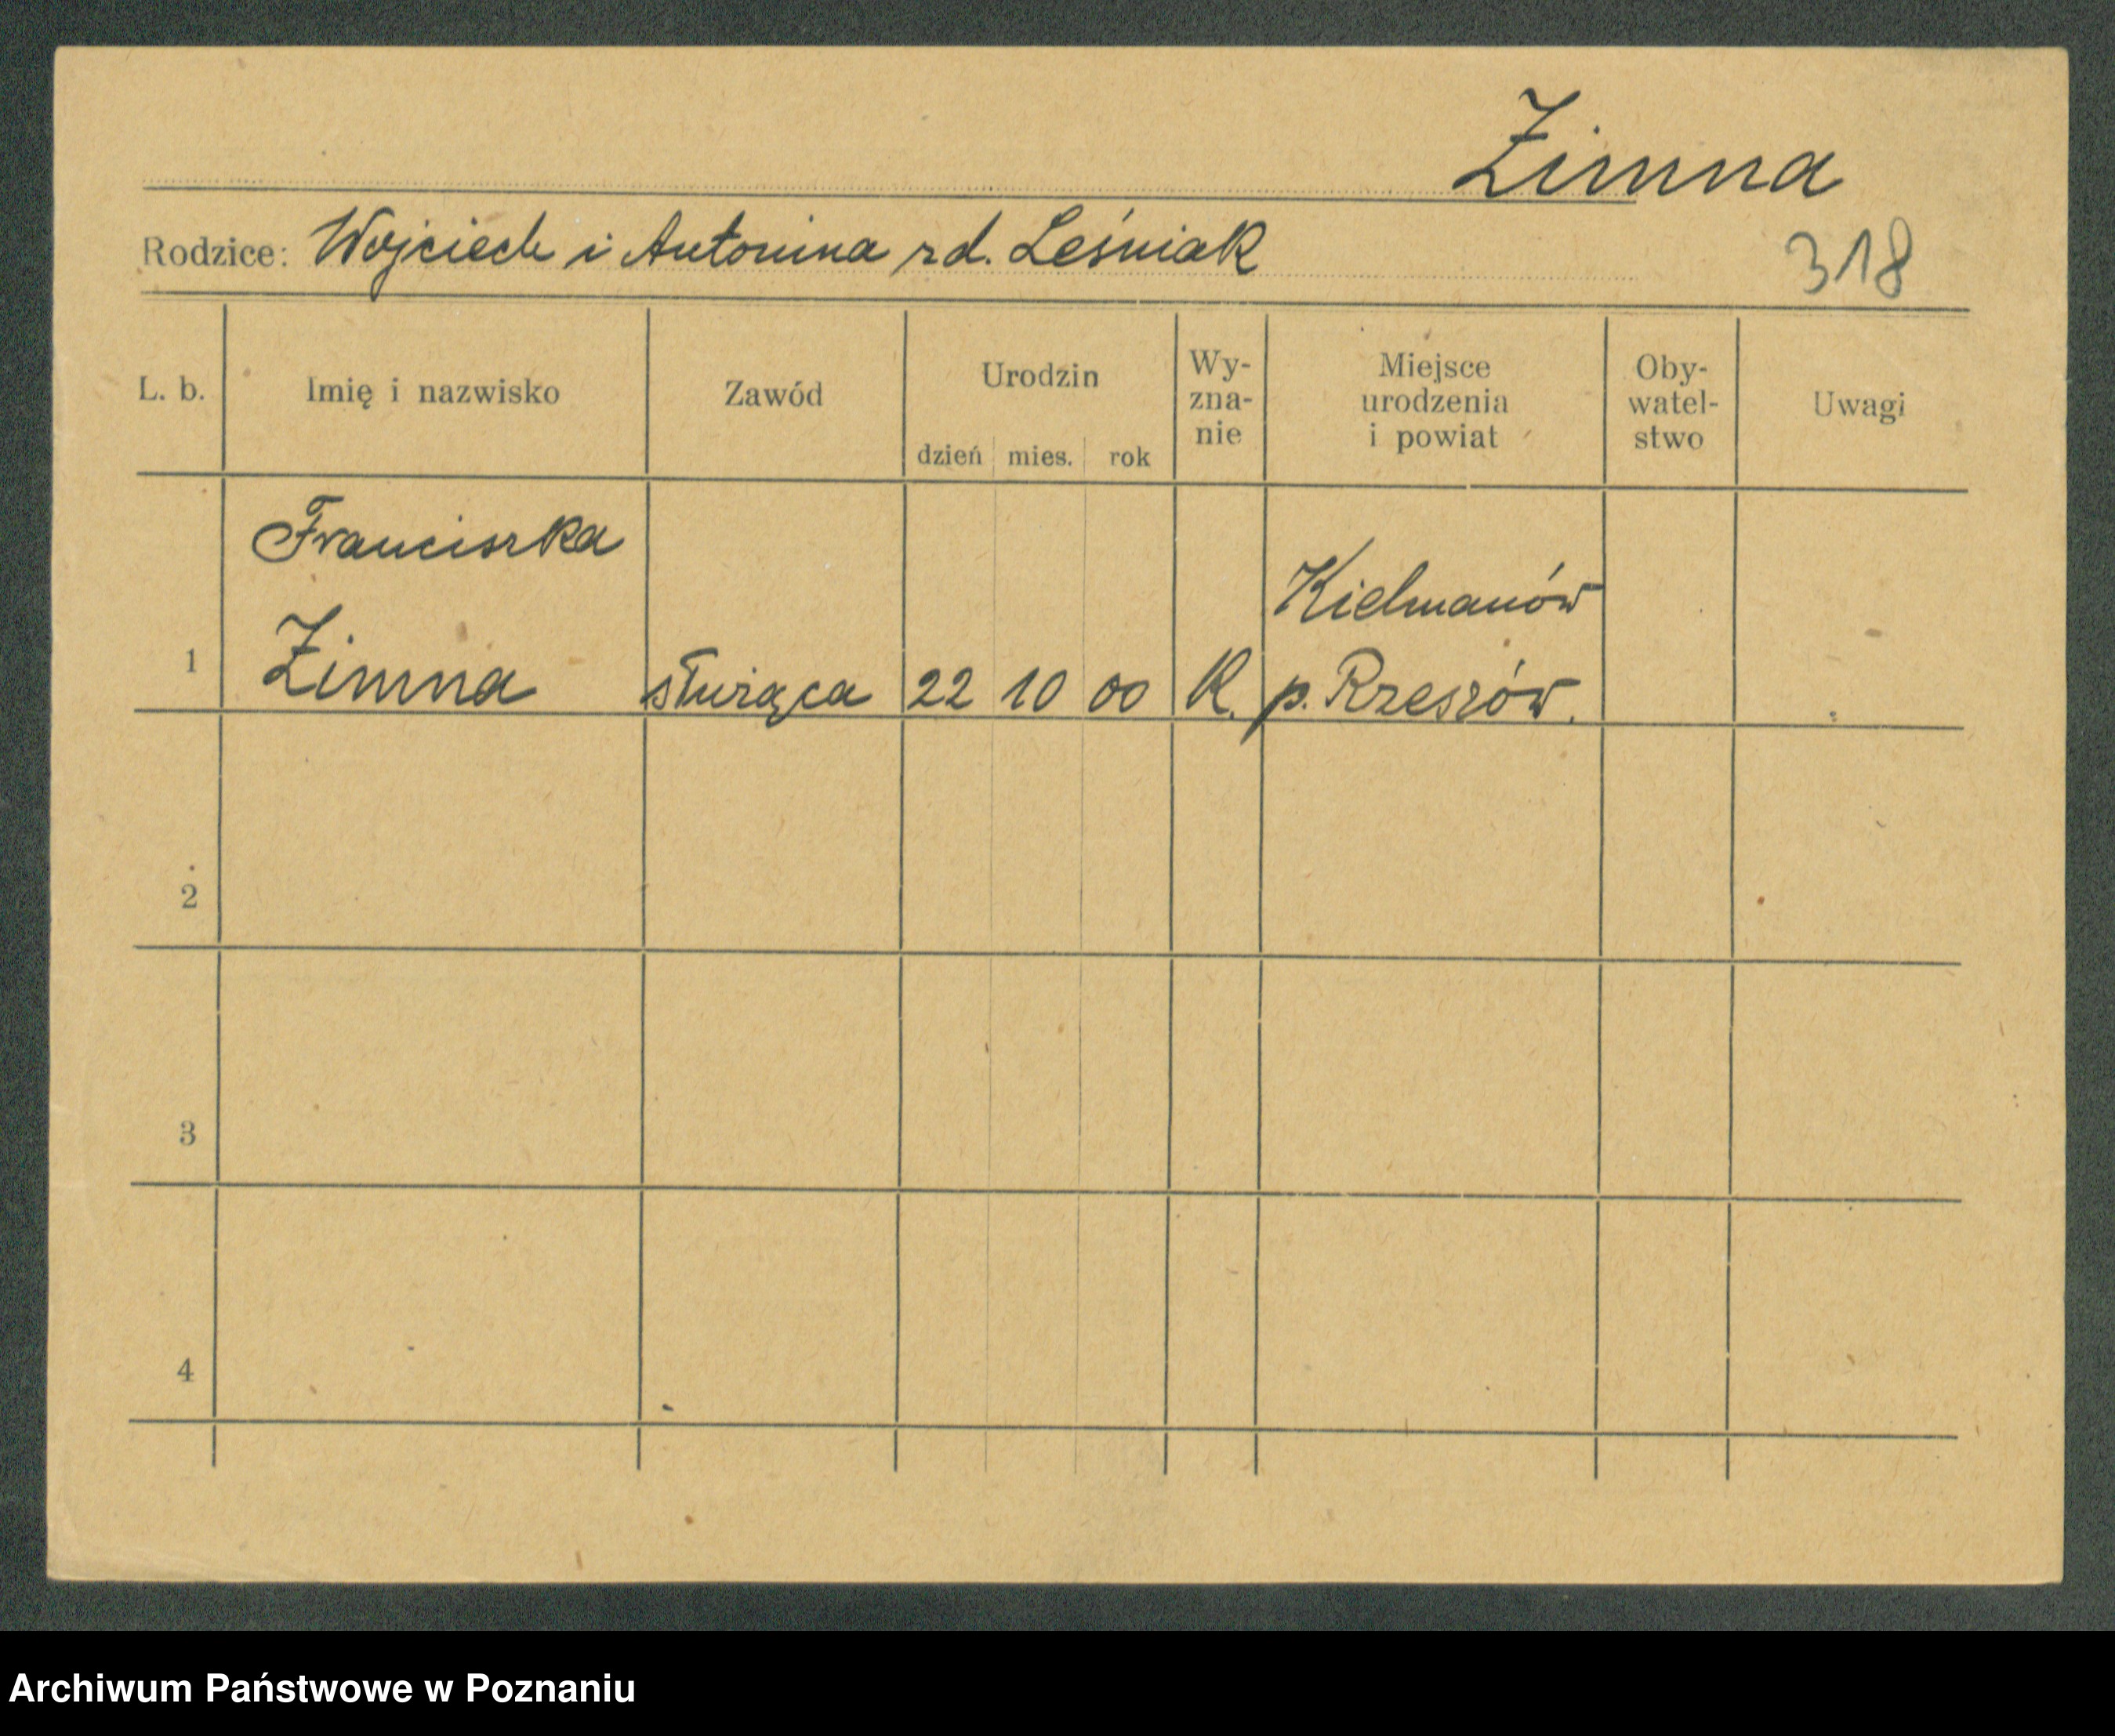 Zimna
Rodzice: Wojciech i Antonina rd. Leśniak
318
L. b. Imię i nazwisko Zawód Urodzin dzień mies. rok Wy-zna-nie Miejsce urodzenia i powiat Oby-watel-stwo Uwagi
Franciszka
Kielmanów
1 Zimna służąca 22 10 00 K. p. Rzeszów.
2
3
4
Archiwum Państwowe w Poznaniu